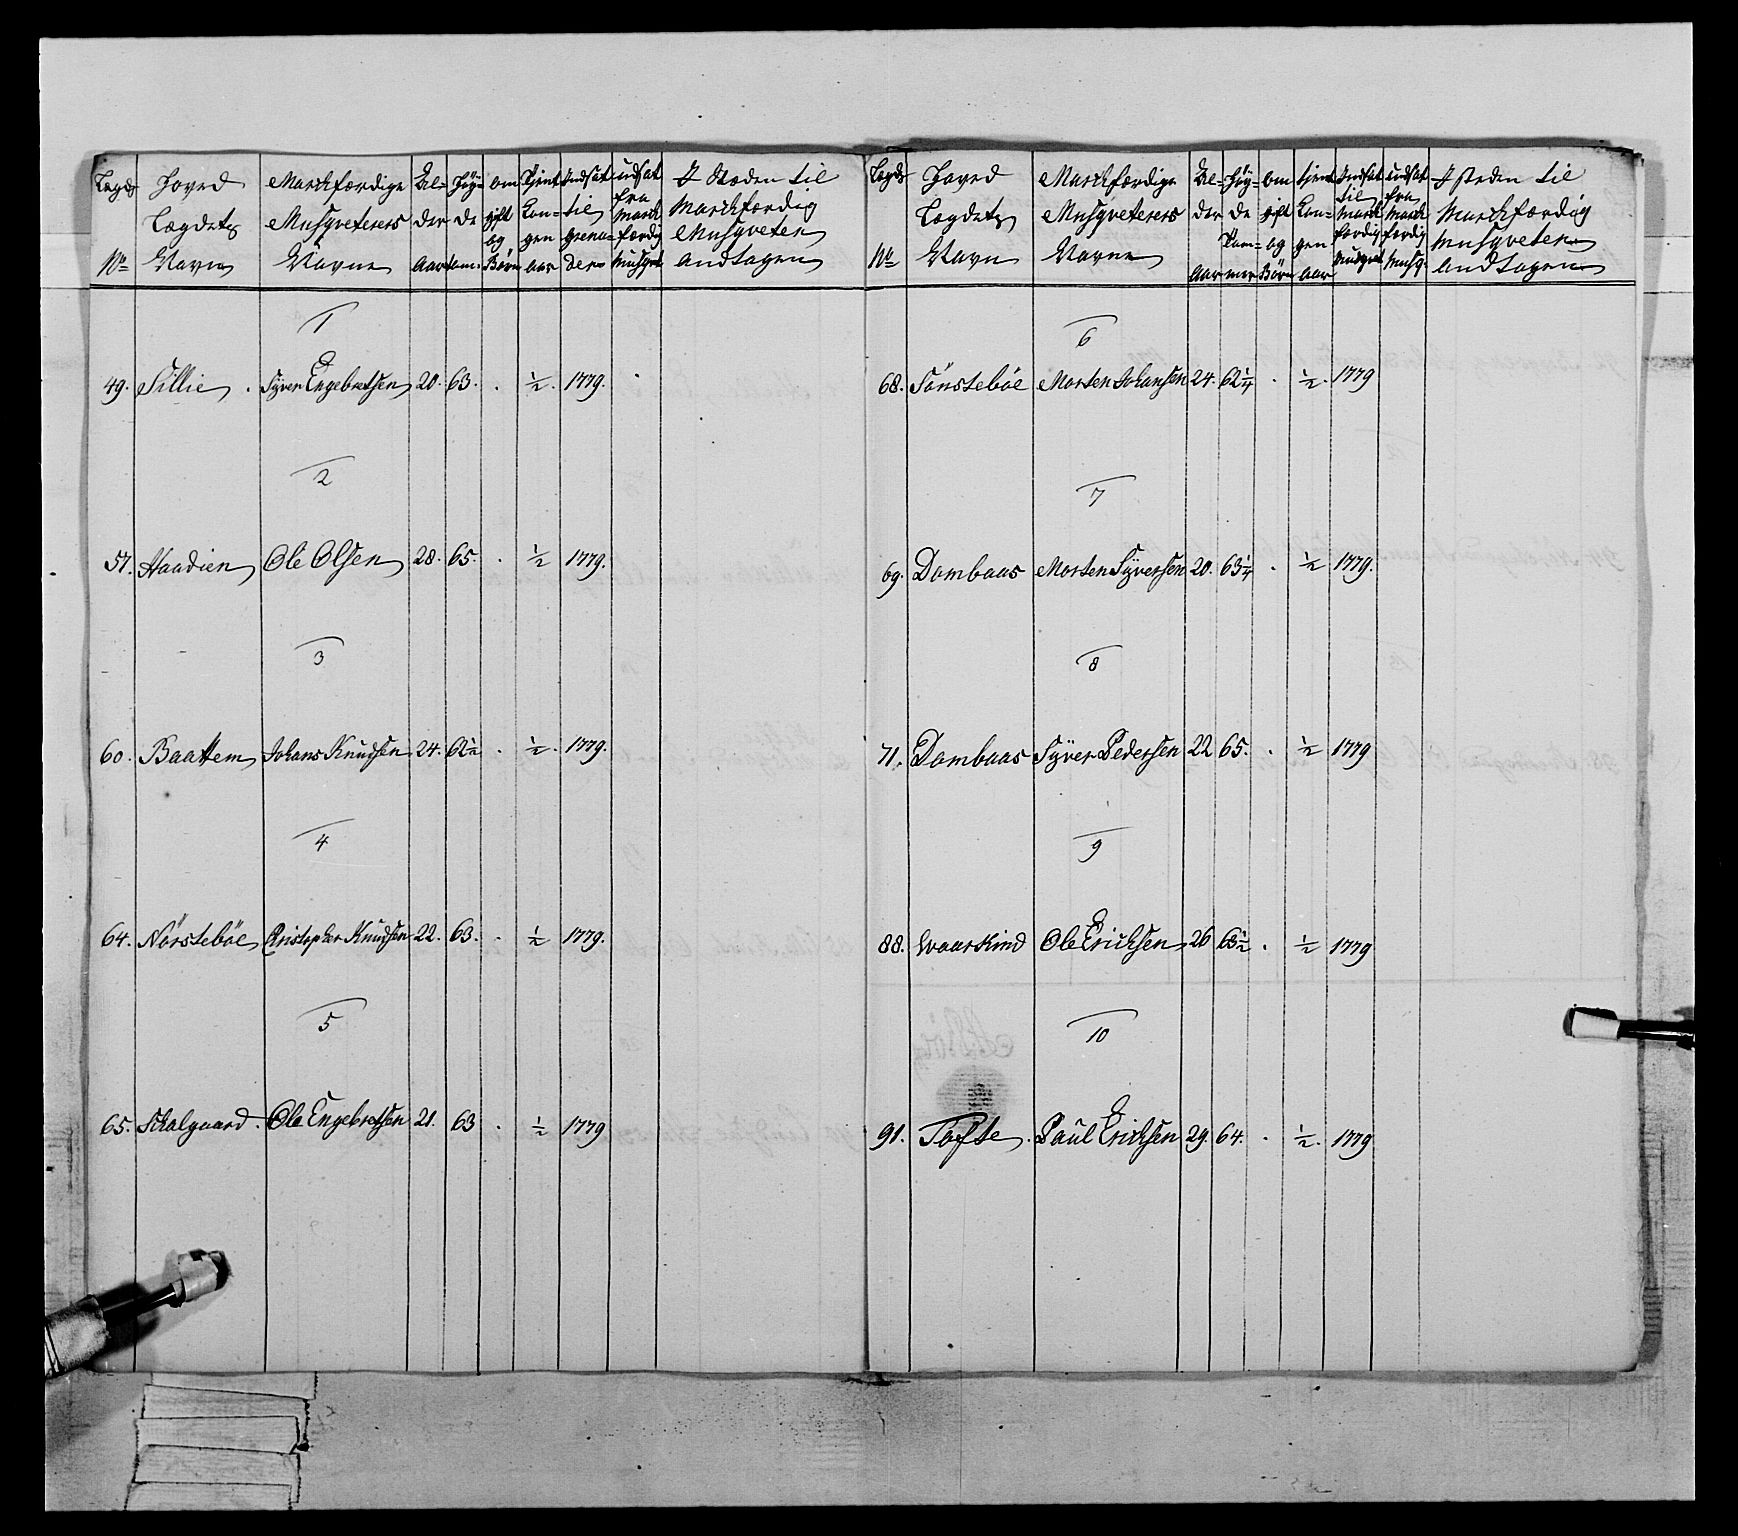 Lægds No | Hoved Lægdets Navn | Marchfærdige Musqveterers Navne | Al= der aar | Höy= de tom: | om gift og Börn | Tjent Kon= gen aar | Indsat til grena= deer | udsat fra March færdig Musqvet | I Stæden til Marchfærdig Musqveteer andtagen
1
49. | Sillie . | Syver Engebretsen | 20. | 63. | . | ½. | 1779. | .
2
57. | Haadien | Ole Olsen | 28. | 65. | . | ½ | 1779.
3
60. | Baattem | Johans Knudsen | 24. | 62½ | . | ½. | 1779.
4
64. | Nörsteböe | Christopher Knudsen | 22. | 63. | . | ½ | 1779.
5
65. | Schalgaard . | Ole Engebretsen | 21. | 63 | . | ½ | 1779
Lægds No | Hoved Lægdets Navn | Marchfærdige Musqveterers Navne | Al= der aar | Höy= de Tom= mer | om gift og Börn | tjent Kon= gen aar | Indsat til March færdig Musqvet | udsat fra March færdig Musq. | I steden til Marchfærdig Musqveteer andtagen
6
68. | Sönsteböe | Morten Johansen | 24. | 62¼ | . | ½. | 1779
7
69. | Dombaas | Morten Syversen | 20. | 63¼ | . | ½ | 1779.
8
71. | Dombaas | Syver Pedersen | 22 | 65. | . | ½ | 1779
9
88. | Waarkind | Ole Erichsen | 26 | 63½ | . | ½ | 1779
10
91. | Tofte . | Paul Erichsen | 29. | 64. | . | ½. | 1779